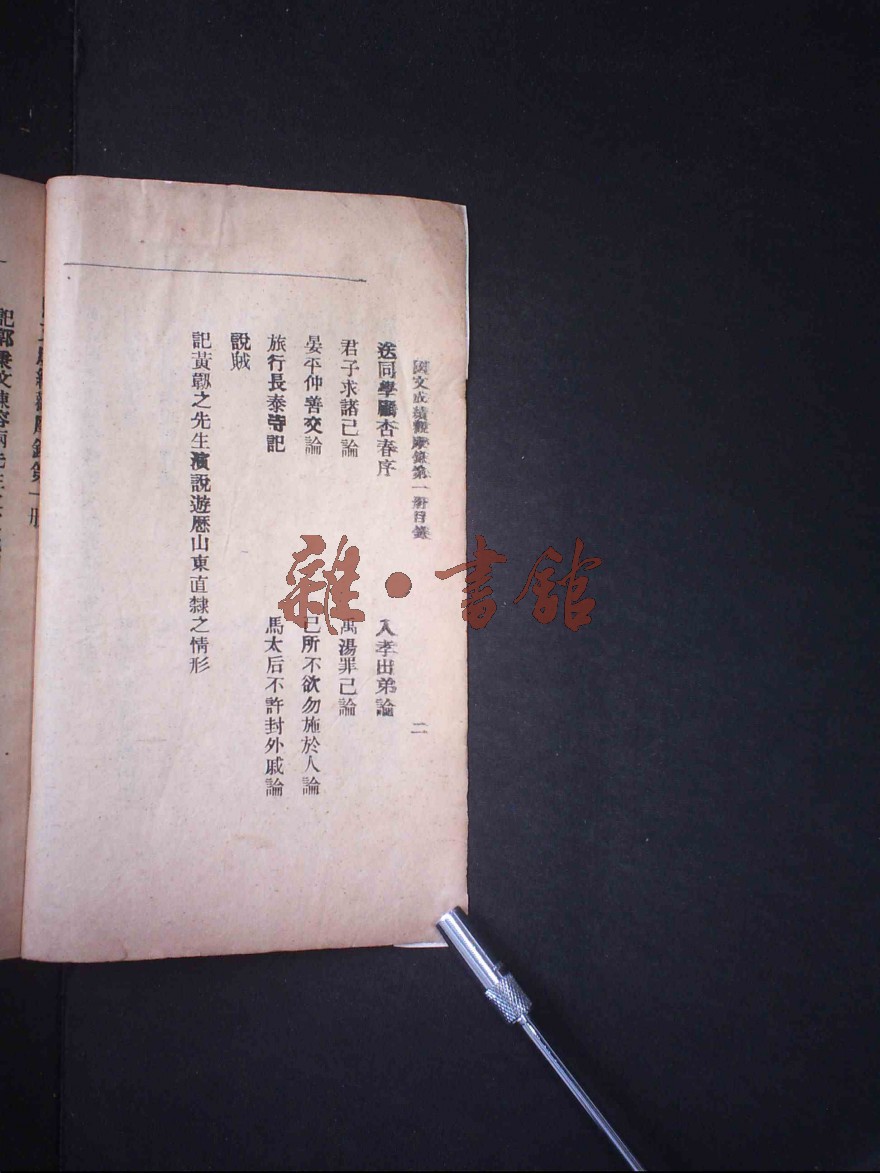 國文成績觀摩錄第一冊目錄
二
送同學顧杏春序
入孝出弟論
君子求諸己論
禹湯罪己論
晏平仲善交論
己所不欲勿施於人論
旅行長泰寺記
馬太后不許封外戚論
說賊
記黃韌之先生演說遊歷山東直隸之情形
雜·書館
第一册